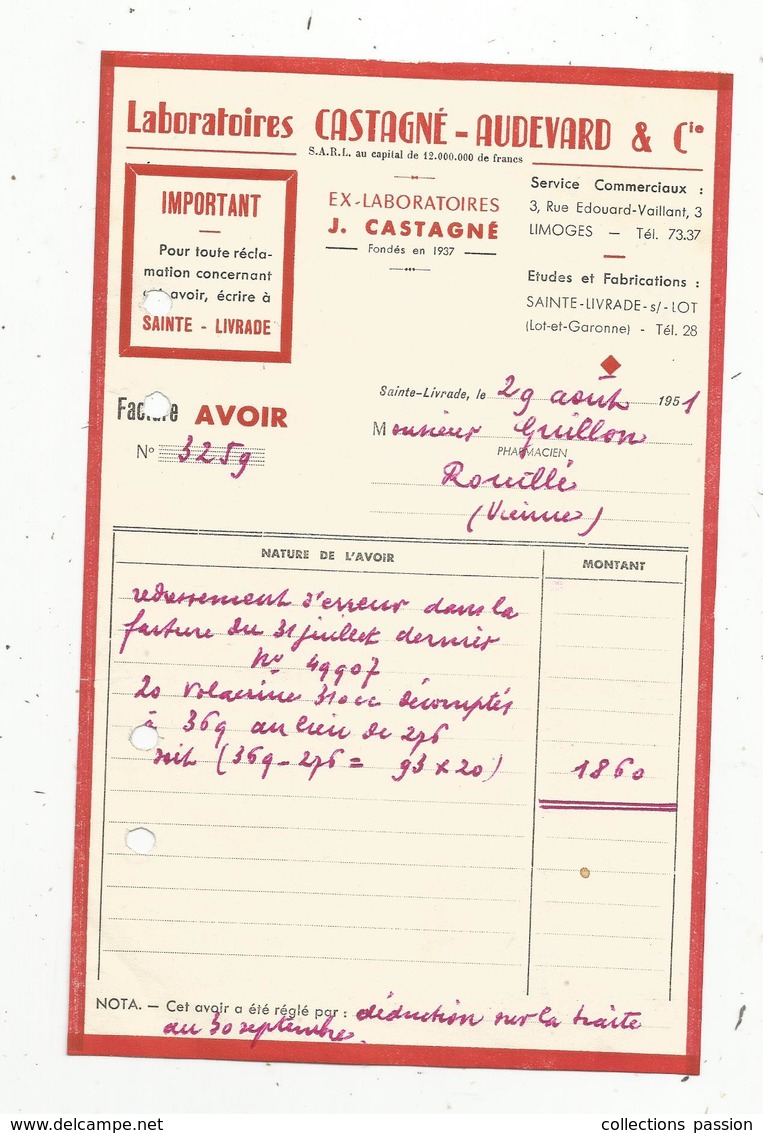 Laboratoires CASTAGNÉ - AUDEVARD & Cie
S.A.R.L. au capital de 12.000.000 de francs
IMPORTANT
Pour toute récla-
mation concernant
avoir, écrire à
SAINTE - LIVRADE
EX-LABORATOIRES
J. CASTAGNÉ
Fondés en 1937
Service Commerciaux :
3, Rue Edouard-Vaillant, 3
LIMOGES — Tél. 73.37
Etudes et Fabrications :
SAINTE-LIVRADE-s/-LOT
(Lot-et-Garonne) - Tél. 28
Sainte-Livrade, le 29 août 1951
Facture AVOIR
No 3259
Monsieur Guillon
PHARMACIEN
Rouillé
(Vienne)
NATURE DE L'AVOIR
MONTANT
redressement d'erreur dans la
facture du 31 juillet dernier
No 49907
20 310cc décomptés
à 369 au lieu de 276
soit (369 - 276 = 93 x 20) 1860
NOTA. — Cet avoir a été réglé par : déduction sur la traite
au 30 septembre.
delcampe.net
collections passion